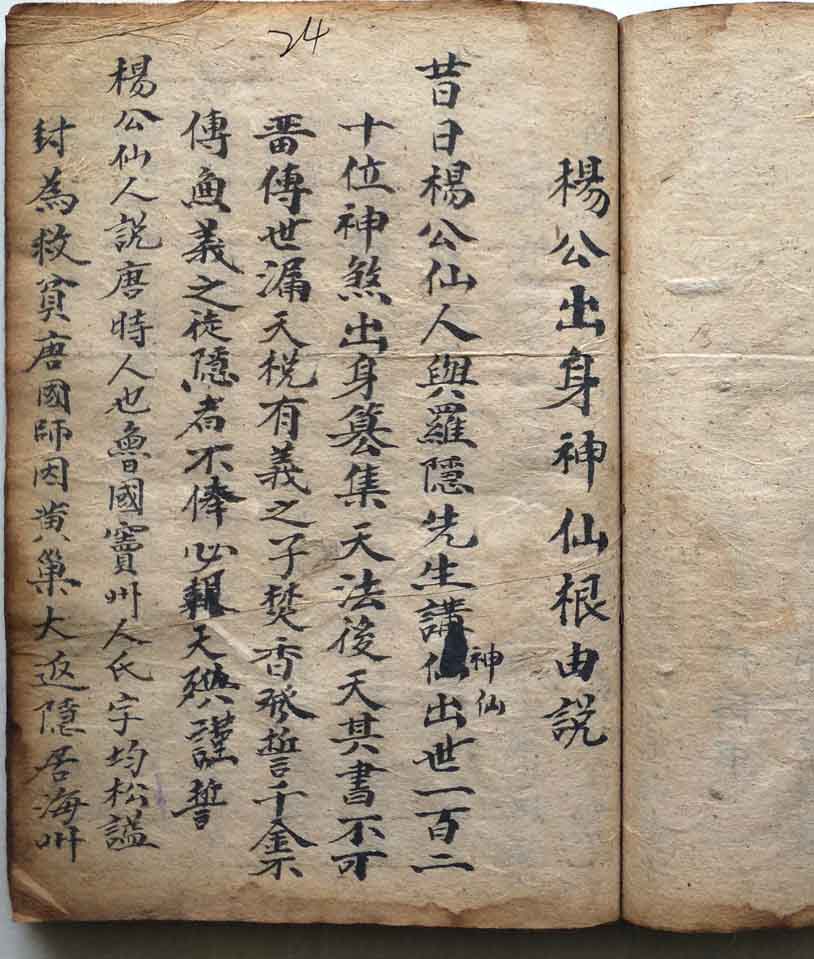 24
楊公出身神仙根由説
昔日楊公仙人與羅隱先生講仙出世一百二
神仙
十位神煞出身篡集天法後天其書不可
畨傳世漏天税有義之子焚香發誓千金不
傳無義之徒隱者不俸必報天殃謹誓
楊公仙人説唐時人也魯國竇州人氏字均松謚
封為救貧唐國師因黄巢大返隱居海州